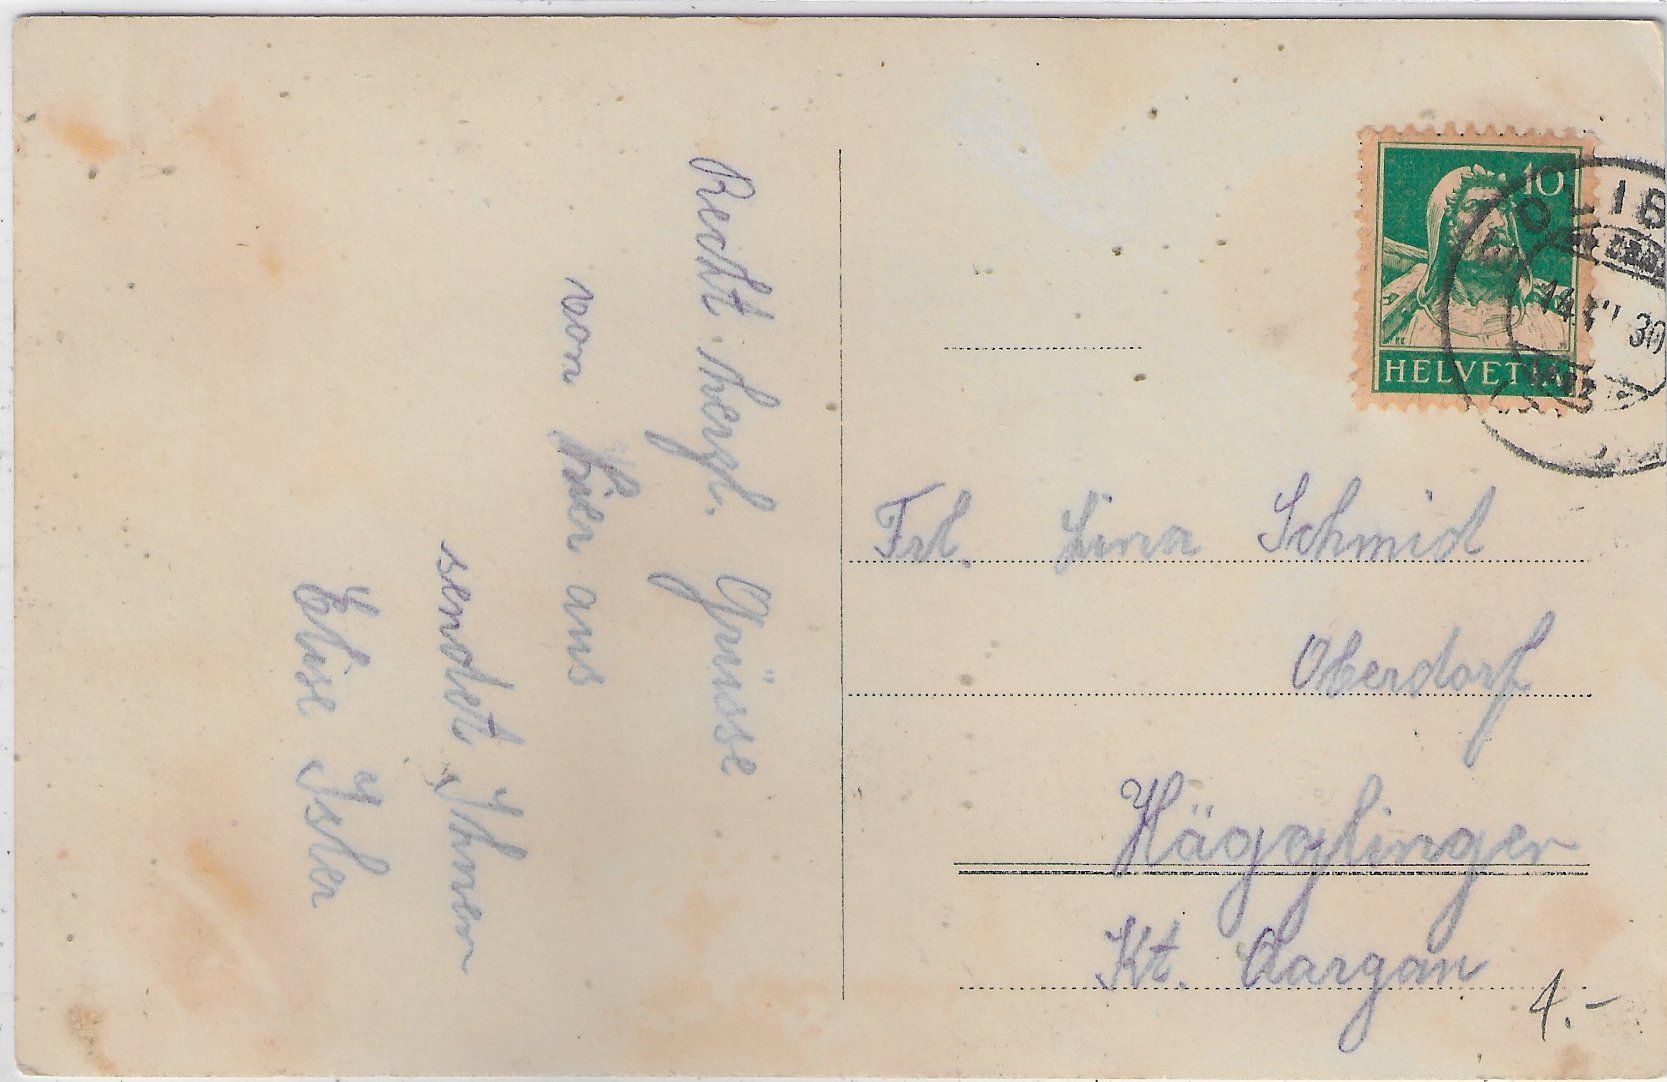 Recht herzl. Grüsse
von hier aus
sendet Ihnen
Elise Isler
10
HELVETIA
30
Frl. Lina Schmid
Oberdorf
Hägglingen
Kt. Aargau
4.-